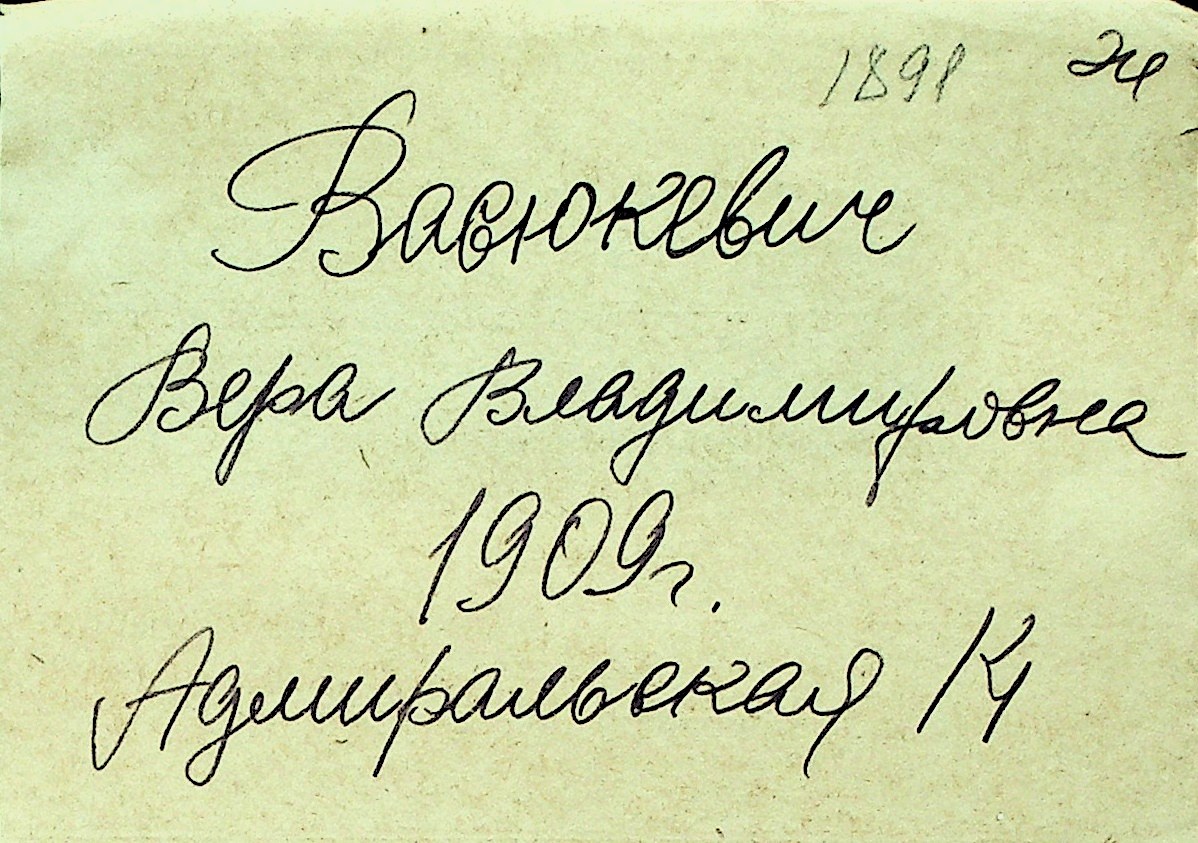 1898
Васюкевич
Вера Владимировна
1909г.
Адмиральская